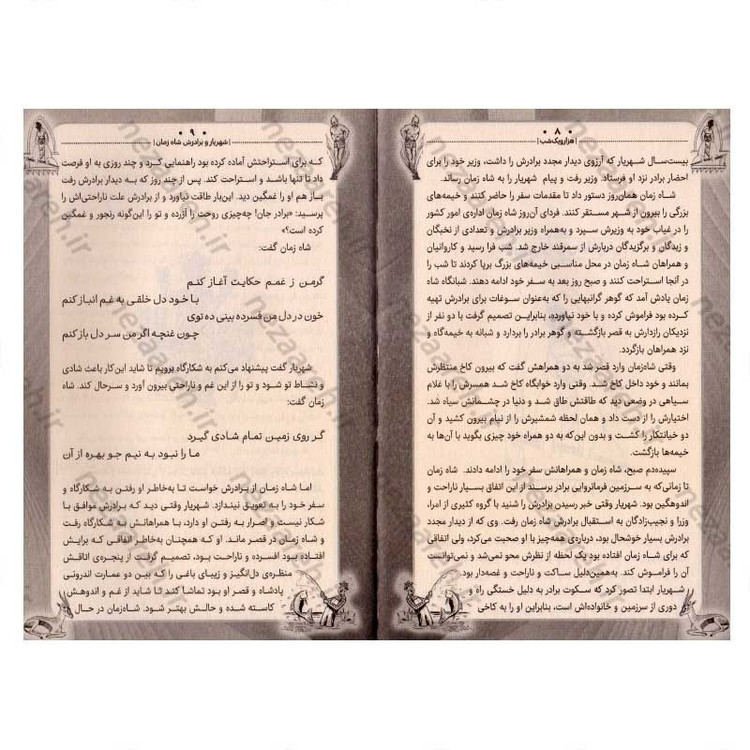 ۸۰
| هزارویک‌شب |
بیست‌سال شهریار که آرزوی دیدار مجدد برادرش را داشت، وزیر خود را برای
احضار برادر نزد او فرستاد. وزیر رفت و پیام شهریار را به شاه زمان رساند.
شاه زمان همان‌روز دستور داد تا مقدمات سفر را حاضر کنند و خیمه‌های
بزرگی را بیرون از شهر مستقر کنند. فردای آن‌روز شاه زمان اداره‌ی امور کشور
را در غیاب خود به وزیرش سپرد و به‌همراه وزیر برادرش و تعدادی از نخبگان
و زبدگان و برگزیدگان دربارش از سمرقند خارج شد. شب فرا رسید و کاروانیان
و همراهان شاه زمان در محل مناسبی خیمه‌های بزرگ برپا کردند تا شب را
در آنجا استراحت کنند و صبح روز بعد به سفر خود ادامه دهند. شبانگاه شاه
زمان یادش آمد که گوهر گرانبهایی را که به‌عنوان سوغات برای برادرش تهیه
کرده بود فراموش کرده و با خود نیاورده، بنابراین تصمیم گرفت با دو نفر از
نزدیکان رازدارش به قصر بازگشته و گوهر برادر را بردارد و شبانه به خیمه‌گاه و
نزد همراهان بازگردد.
وقتی شاه‌زمان وارد قصر شد به دو همراهش گفت که بیرون کاخ منتظرش
بمانند و خود داخل کاخ شد. وقتی وارد خوابگاه کاخ شد همسرش را با غلام
سیاهی در وضعی دید که طاقتش طاق شد و دنیا در چشمانش سیاه شد.
اختیارش را از دست داد و همان لحظه شمشیرش را از نیام بیرون کشید و آن
دو خیانتکار را کشت و بدون این‌که به دو همراه خود چیزی بگوید با آن‌ها به
خیمه‌ها بازگشت.
سپیده‌دم صبح، شاه زمان و همراهانش سفر خود را ادامه دادند. شاه زمان
تا زمانی‌که به سرزمین فرمانروایی برادر برسند از این اتفاق بسیار ناراحت و
اندوهگین بود. شهریار وقتی خبر رسیدن برادرش را شنید با گروه کثیری از امرا،
وزرا و نجیب‌زادگان به استقبال برادرش شاه زمان رفت. وی که از دیدار مجدد
برادرش بسیار خوشحال بود، درباره‌ی همه‌چیز با او صحبت می‌کرد، ولی اتفاقی
که برای شاه زمان افتاده بود یک لحظه از نظرش محو نمی‌شد و نمی‌توانست
آن را فراموش کند. به‌همین‌دلیل ساکت و ناراحت و غصه‌دار بود.
شهریار ابتدا تصور کرد که سکوت برادر به دلیل خستگی راه و
دوری از سرزمین و خانواده‌اش است، بنابراین او را به کاخی
۹۰
| شهریار و برادرش شاه زمان |
که برای استراحتش آماده کرده بود راهنمایی کرد و چند روزی به او فرصت
داد تا تنها باشد و استراحت کند. پس از چند روز که به دیدار برادرش رفت
باز هم او را غمگین دید. این‌بار طاقت نیاورد و از برادرش علت ناراحتی‌اش را
پرسید: «برادر جان! چه‌چیزی روحت را آزرده و تو را این‌گونه رنجور و غمگین
کرده است؟»
شاه زمان گفت:
گرمن ز غمم حکایت آغاز کنم
با خود دل خلقی به غم انباز کنم
خون در دل من فسرده بینی ده توی
چون غنچه اگر من سر دل باز کنم
شهریار گفت پیشنهاد می‌کنم به شکارگاه برویم تا شاید این کار باعث شادی
و نشاط تو شود و تو را از این غم و ناراحتی بیرون آورد و سرحال کند. شاه
زمان گفت:
گر روی زمین تمام شادی گیرد
ما را نبود به نیم جو بهره از آن
اما شاه زمان از برادرش خواست تا به‌خاطر او رفتن به شکارگاه و
سفر خود را به تعویق نیندازد. شهریار وقتی دید که برادرش موافق با
شکار نیست و اصرار به رفتن او دارد، با همراهانش به شکارگاه رفت
و شاه زمان در قصر ماند. او که همچنان به‌خاطر اتفاقی که برایش
افتاده بود افسرده و ناراحت بود، تصمیم گرفت از پنجره‌ی اتاقش
منظره‌ی دل‌انگیز و زیبای باغی را که بین دو عمارت اندرونی
پادشاه و قصر او بود تماشا کند تا شاید از غم و اندوهش
کاسته شده و حالش بهتر شود. شاه‌زمان در حال
nezaareh.ir